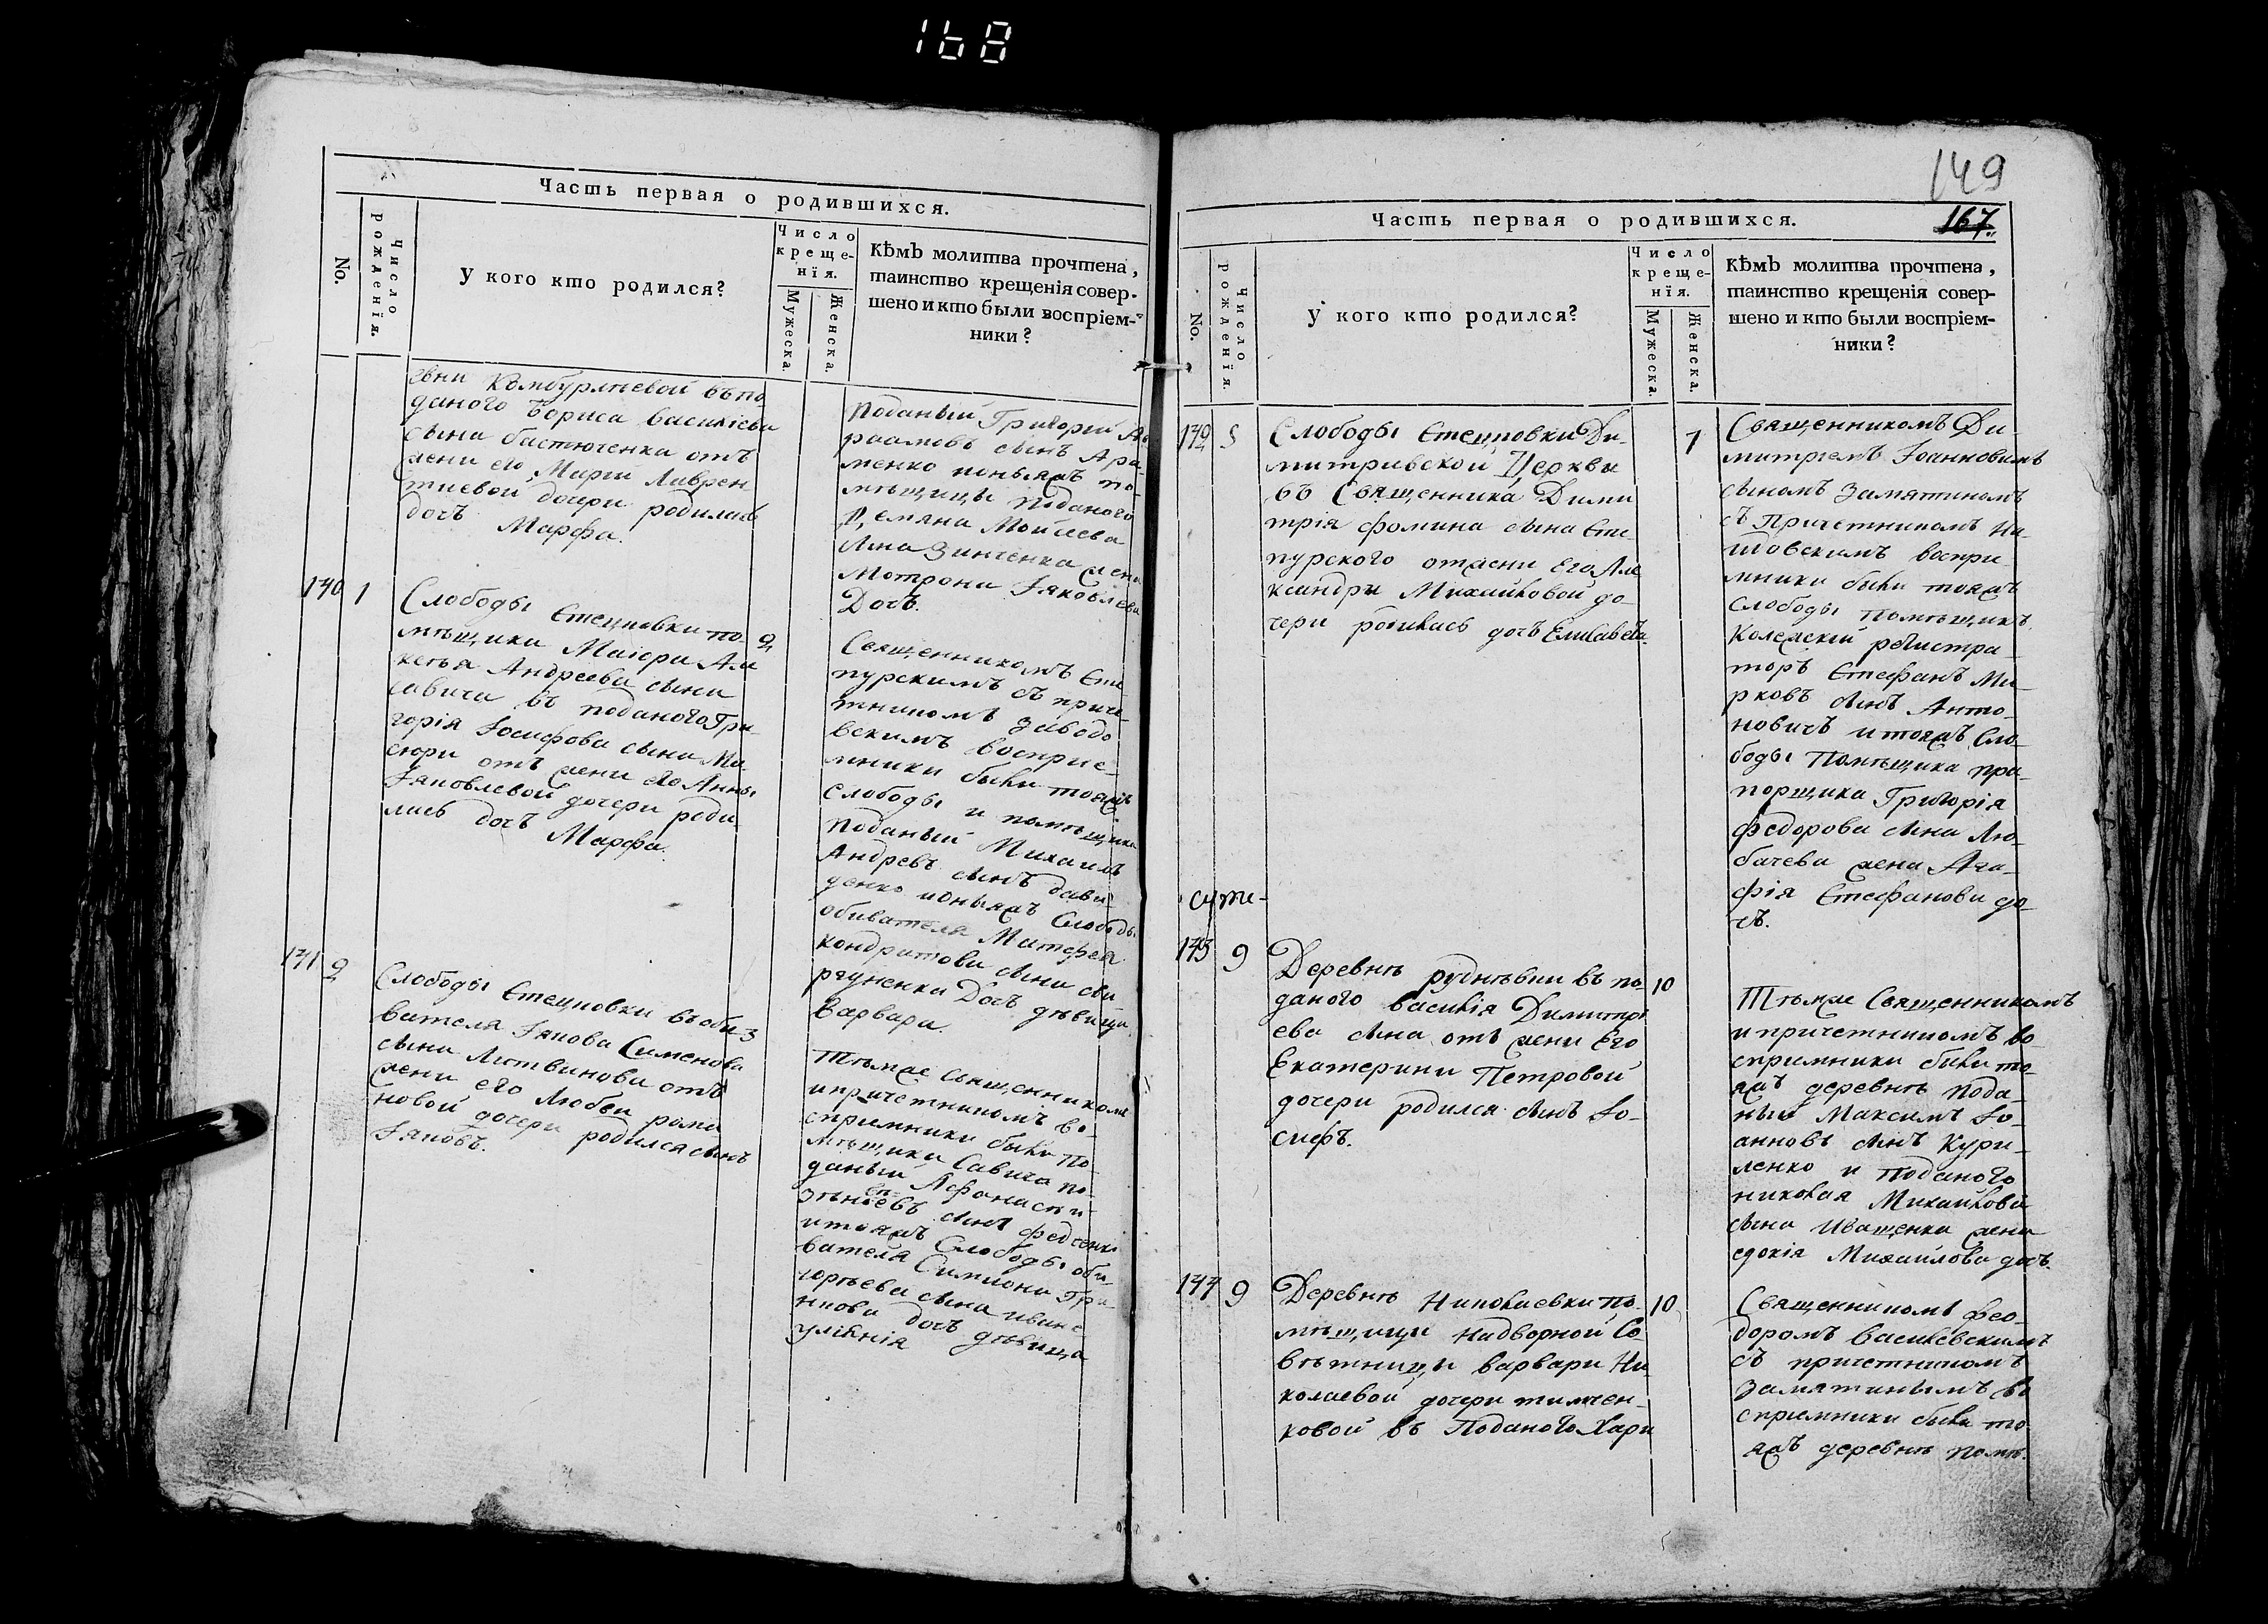 168
Часть первая о родившихся.
No.
Число рожденїя.
У кого кто родился?
Число крещенїя.
Мужеска.
Женска.
Кѣмъ молитва прочтена,
таинство крещенія совер-
шено и кто были воспріем-
ники?
даного Бориса Василіева
сына
жени его Марїи Лаврен
тиевой дочери родилась
дочъ Марфа.
поданый Григорий
раамовъ сынъ
менко
мѣщицы поданого
Демяна Мойсеева
сина Зинченка жена
Мотрона Іяковлева
Дочъ.
170 1
Слободы Стецковки по-
мѣщика Маіора Але
ксѣя Андреева сына
савича въ поданого Гри-
горія Іосифова сына
от жени его Анны
Іяковлевой дочери роди-
лась дочъ Марфа.
2
Священникомъ Сте
пурскимъ съ приче-
тникомъ Заводо
вскимъ восприе-
мники были тояжъ
слободы и помѣщика
поданый Михаилъ
Андревъ сынъ Дави-
денко слободы
обивателя Матфея
кондратова сына
дочъ дѣвица
Варвара.
171 2
Слободы Стецковки въ оби
вателя Іякова Сименова
сына Литвинова отъ
жени его Любви рома
новой дочери родился сынъ
Іяковъ.
3
Тѣмже священникомъ
и причетникомъ во-
сприемники были по-
мѣщика Савича по-
даный Афанасий
сынъ Федченко
и тояжъ Слободы оби-
вателя Симиона Гри
горьева сына
дочъ дѣвица
улїянія
149
167.
Часть первая о родившихся.
No.
Число рожденїя.
У кого кто родился?
Число крещенїя.
Мужеска.
Женска.
Кѣмъ молитва прочтена,
таинство крещенія совер-
шено и кто были воспріем-
ники?
172 5
Слободы Стецковки Ди-
митриевской Церкви
въ Священника Дими
трія Фомина сына Сте
пурского от жени Его Але
ксандры Михайловой до-
чери родилась дочъ Елисавета.
7
Священникомъ Ди-
митриемъ Іоанновимъ
сыномъ Замятиномъ
съ Причетникомъ
воспри
мники были тояжъ
слободы помѣщикъ
Колежский регистра
торъ Стефанъ Ма
рковъ сынъ Анто-
новичъ и тояжъ Сло-
боды Помѣщика пра-
порщика Григорія
Федорова сына Лю-
бачева жена Ага-
фія Стефанова до-
чъ.
173 9
Деревнѣ руднѣвки въ по-
даного Василія Димитрі
ева сына отъ жени Его
Екатерини Петровой
дочери родился сынъ Іо-
сифъ.
10
Тѣмже Священникомъ
и причетникомъ во
сприемники были то-
яжъ деревнѣ пода-
ный Максимъ Іо-
анновъ сынъ Кури-
ленко и поданого
николая Михайлова
сына Иващенка жена
едокія Михайлова дочъ.
174 9
Деревнѣ Николаевки по-
мѣщици надворной Со-
вѣтници Варвари Ни-
колаевой дочери тимчен-
ковой въ Поданого Хари
10
Священникомъ Фео-
доромъ Василевскимъ
съ причетникомъ
Замятинымъ во
сприемники были то-
яжъ деревнѣ помѣ-